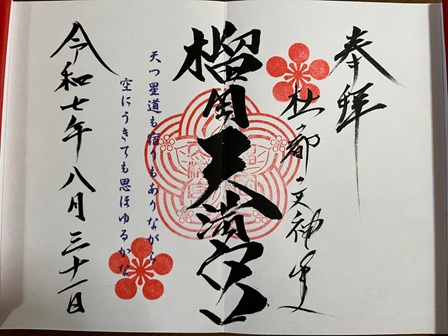 奉拝
杜の都・文神の里
榴岡天満宮
天つ星道も宿りもありながら
空にうきても思ほゆるかな
令和七年八月三十一日